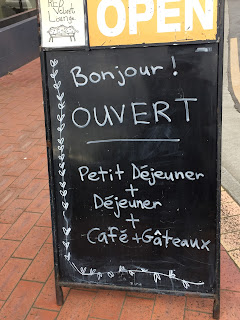 RED
Velvet
Lounge
OPEN
Bonjour !
OUVERT
Petit Déjeuner
+
Déjeuner
+
Café + Gâteaux